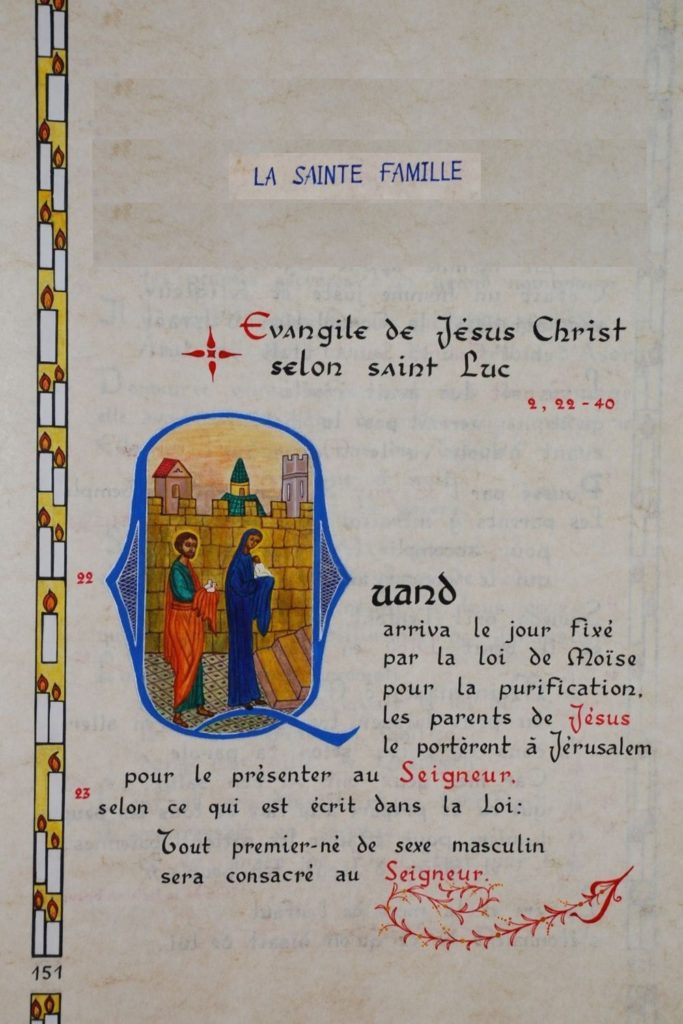 LA SAINTE FAMILLE
Evangile de Jésus Christ
selon saint Luc
2, 22-40
22
Quand
arriva le jour fixé
par la loi de Moïse
pour la purification,
les parents de Jésus
le portèrent à Jérusalem
pour le présenter au Seigneur,
23
selon ce qui est écrit dans la Loi:
Tout premier-né de sexe masculin
sera consacré au Seigneur.
151